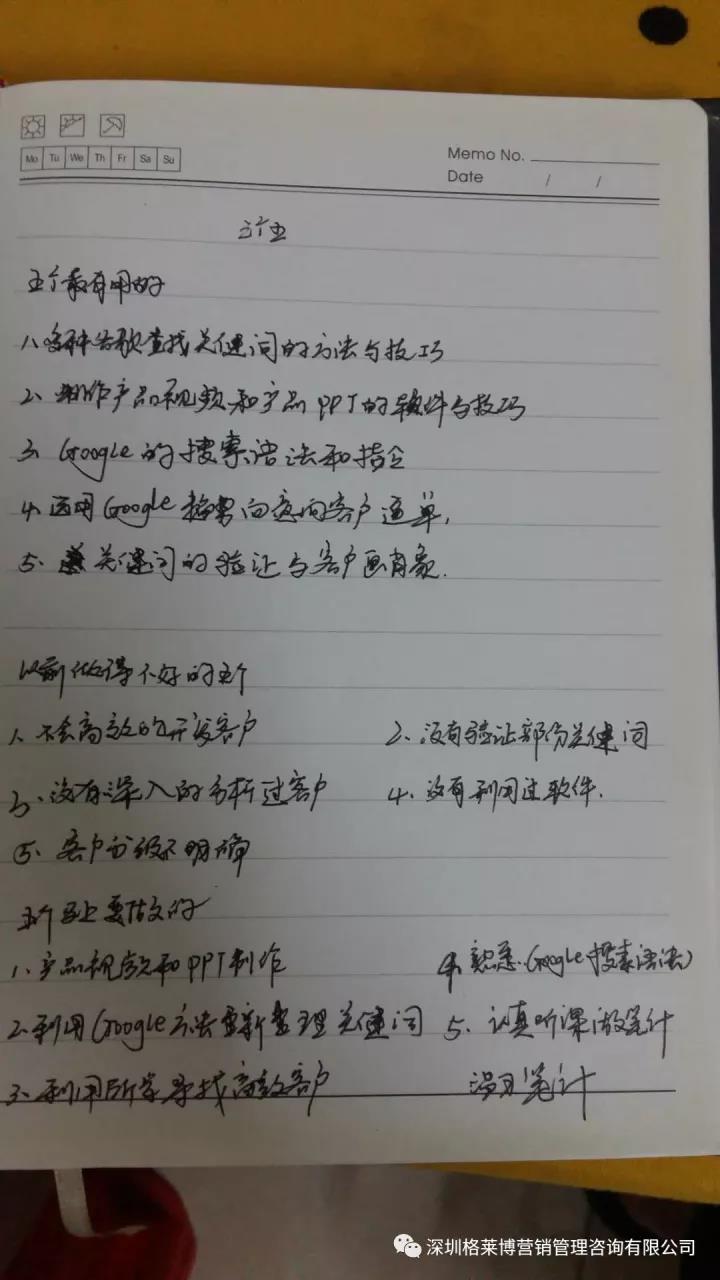 Mo Tu We Th Fr Sa Su
Memo No.
Date / /
三个五
五个最有用的
1、多种谷歌查找关键词的方法与技巧
2、制作产品视频和产品PPT的软件与技巧
3、Google的搜索语法和指令
4、运用Google 客户
5、关键词的验证与客户画肖象.
以前做得不好的五个
1、不会高效的开发客户 2、没有验证部份关键词
3、没有深入的分析过客户 4、没有利用过软件.
5、客户分级不明确
五个马上要做的
1、产品视频和PPT制作 4、熟悉Google搜索语法
2、利用Google方法重新整理关键词 5、认真听课做笔计
3、利用所学寻找高效客户 温习笔计
深圳格莱博营销管理咨询有限公司